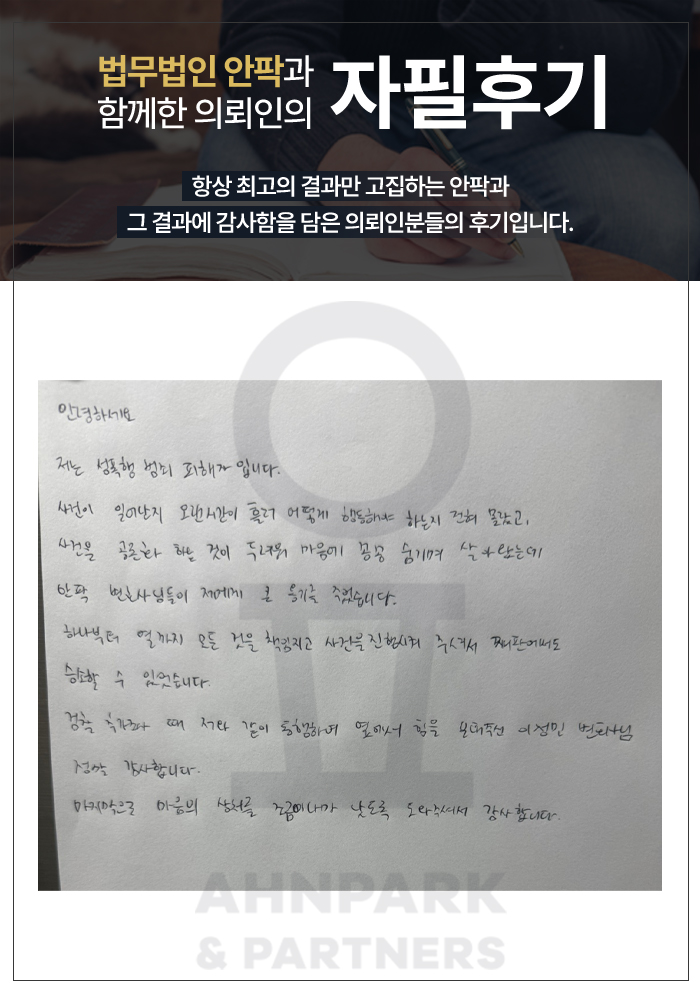 법무법인 안팍과
함께한 의뢰인의
자필후기
항상 최고의 결과만 고집하는 안팍과
그 결과에 감사함을 담은 의뢰인분들의 후기입니다.
안녕하세요
저는 성폭행 범죄 피해자 입니다.
사건이 일어난지 오랜시간이 흘러 어떻게 행동해야 하는지 전혀 몰랐고,
사건을 공론화 하는 것이 두려워 마음에 꽁꽁 숨기며 살아왔는데
안팍 변호사님들이 저에게 큰 용기를 주었습니다.
하나부터 열까지 모든 것을 책임지고 사건을 진행시켜 주셔서 재판에서도
승소할 수 있었습니다.
경찰 때 저와 같이 동행하며 옆에서 힘을 이정민 변호사님
정말 감사합니다.
마지막으로 마음의 상처를 조금이나마 낫도록 도와주셔서 감사합니다.
AHNPARK
& PARTNERS